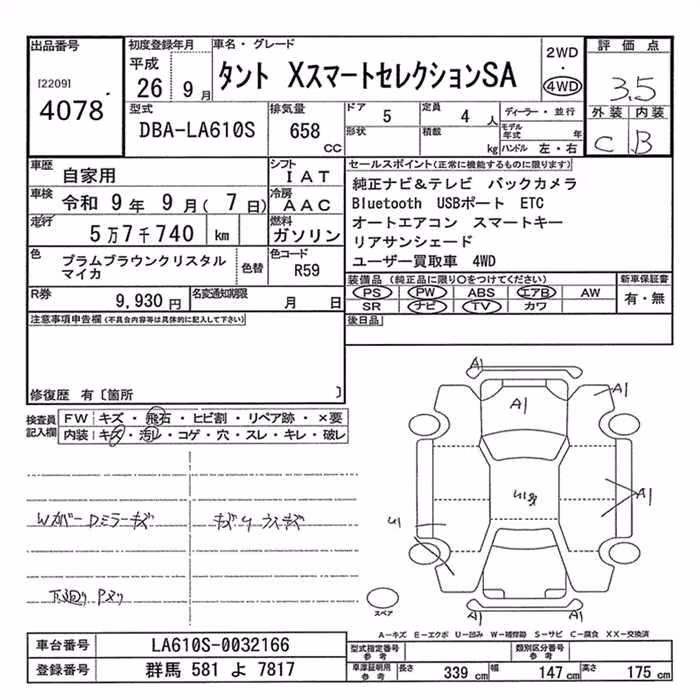 出品番号
[2209]
4078
初度登録年月
平成
26 9月
車名・グレード
タント XスマートセレクションSA
2WD
・
4WD
評価点
3.5
外装 内装
C B
型式
DBA-LA610S
排気量
658
CC
ドア 5
形状
定員 4人
積載 kg
ディーラー・並行
モデル年式 年
ハンドル 左・右
車歴 自家用
シフト IAT
車検 令和 9年 9月( 7日)
冷房 AAC
走行 5万7千740 km
燃料 ガソリン
色 プラムブラウンクリスタル
マイカ
色替
色コード
R59
R券 9,930円
名変通知期限 月 日
セールスポイント(正常に機能するものに限ります)
純正ナビ&テレビ バックカメラ
Bluetooth USBポート ETC
オートエアコン スマートキー
リアサンシェード
ユーザー買取車 4WD
装備品(純正品に限り○をつけてください)
PS PW ABS エアB AW
SR ナビ TV カワ
新車保証書
有・無
後日品
注意事項申告欄(不具合内容等は具体的に記入して下さい)
修復歴 有〔箇所 〕
検査員
記入欄
FW キズ・飛石・ヒビ割・リペア跡・×要
内装 キズ・汚レ・コゲ・穴・スレ・キレ・破レ
Wカバー Dミラーキズ
下廻り
A1
A1
A1
A1
A1
A1
スペア
A-キズ E-エクボ U-凹み W-補修跡 S-サビ C-腐食 XX-交換済
車台番号 LA610S-0032166
登録番号 群馬 581 よ 7817
型式指定番号
参考
類別区分番号
参考
車庫証明用
参考
長さ 339 cm 幅 147 cm 高さ 175 cm